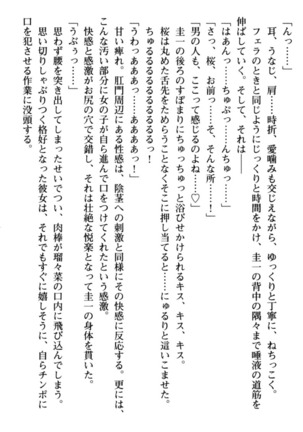 「んっ……」
　耳、うなじ、肩……時折、愛噛みも交じえながら、ゆっくりと丁寧に、ねちっこく。
フェラのときと同じようにじっくりと時間をかけ、圭一の背中の隅々まで唾液の道筋を
伸ばしていく。そして、それは――
「はあんっ……ちゅぷっ……んちゅっ……」
「さっ、桜、お前っ…そ、そんな所……！」
「男の人も、ここって感じるのよね……♡」
　圭一の後ろのすぼまりにちゅっちゅっと浴びせかけられるキス、キス、キス。
　桜は丸めた舌先をためらうことなくそこに押し当てると……にゅるりと這いこませた。
　ちゅるるるるるるるるっ！
「うわっああああっ……ああああっ！」
　甘い痺れ。肛門周辺にある性感は、陰茎への刺激と同様にその快感に反応する。更には、
こんな汚い部分に女の子が自ら進んで口をつけてくれたという感激。
　快感と感激がお尻の穴で交錯し、それは壮絶な悦楽となって圭一の身体を貫いた。
「うぶぅっ……」
　思わず腰を突き出してしまったせいでつい、肉棒が瑠々菜の口内に飛び込んでしまう。
思い切りしゃぶりつく格好となった彼女は、それでもすぐに嬉しそうに、自らチンポに
口を犯させる作業に没頭する。